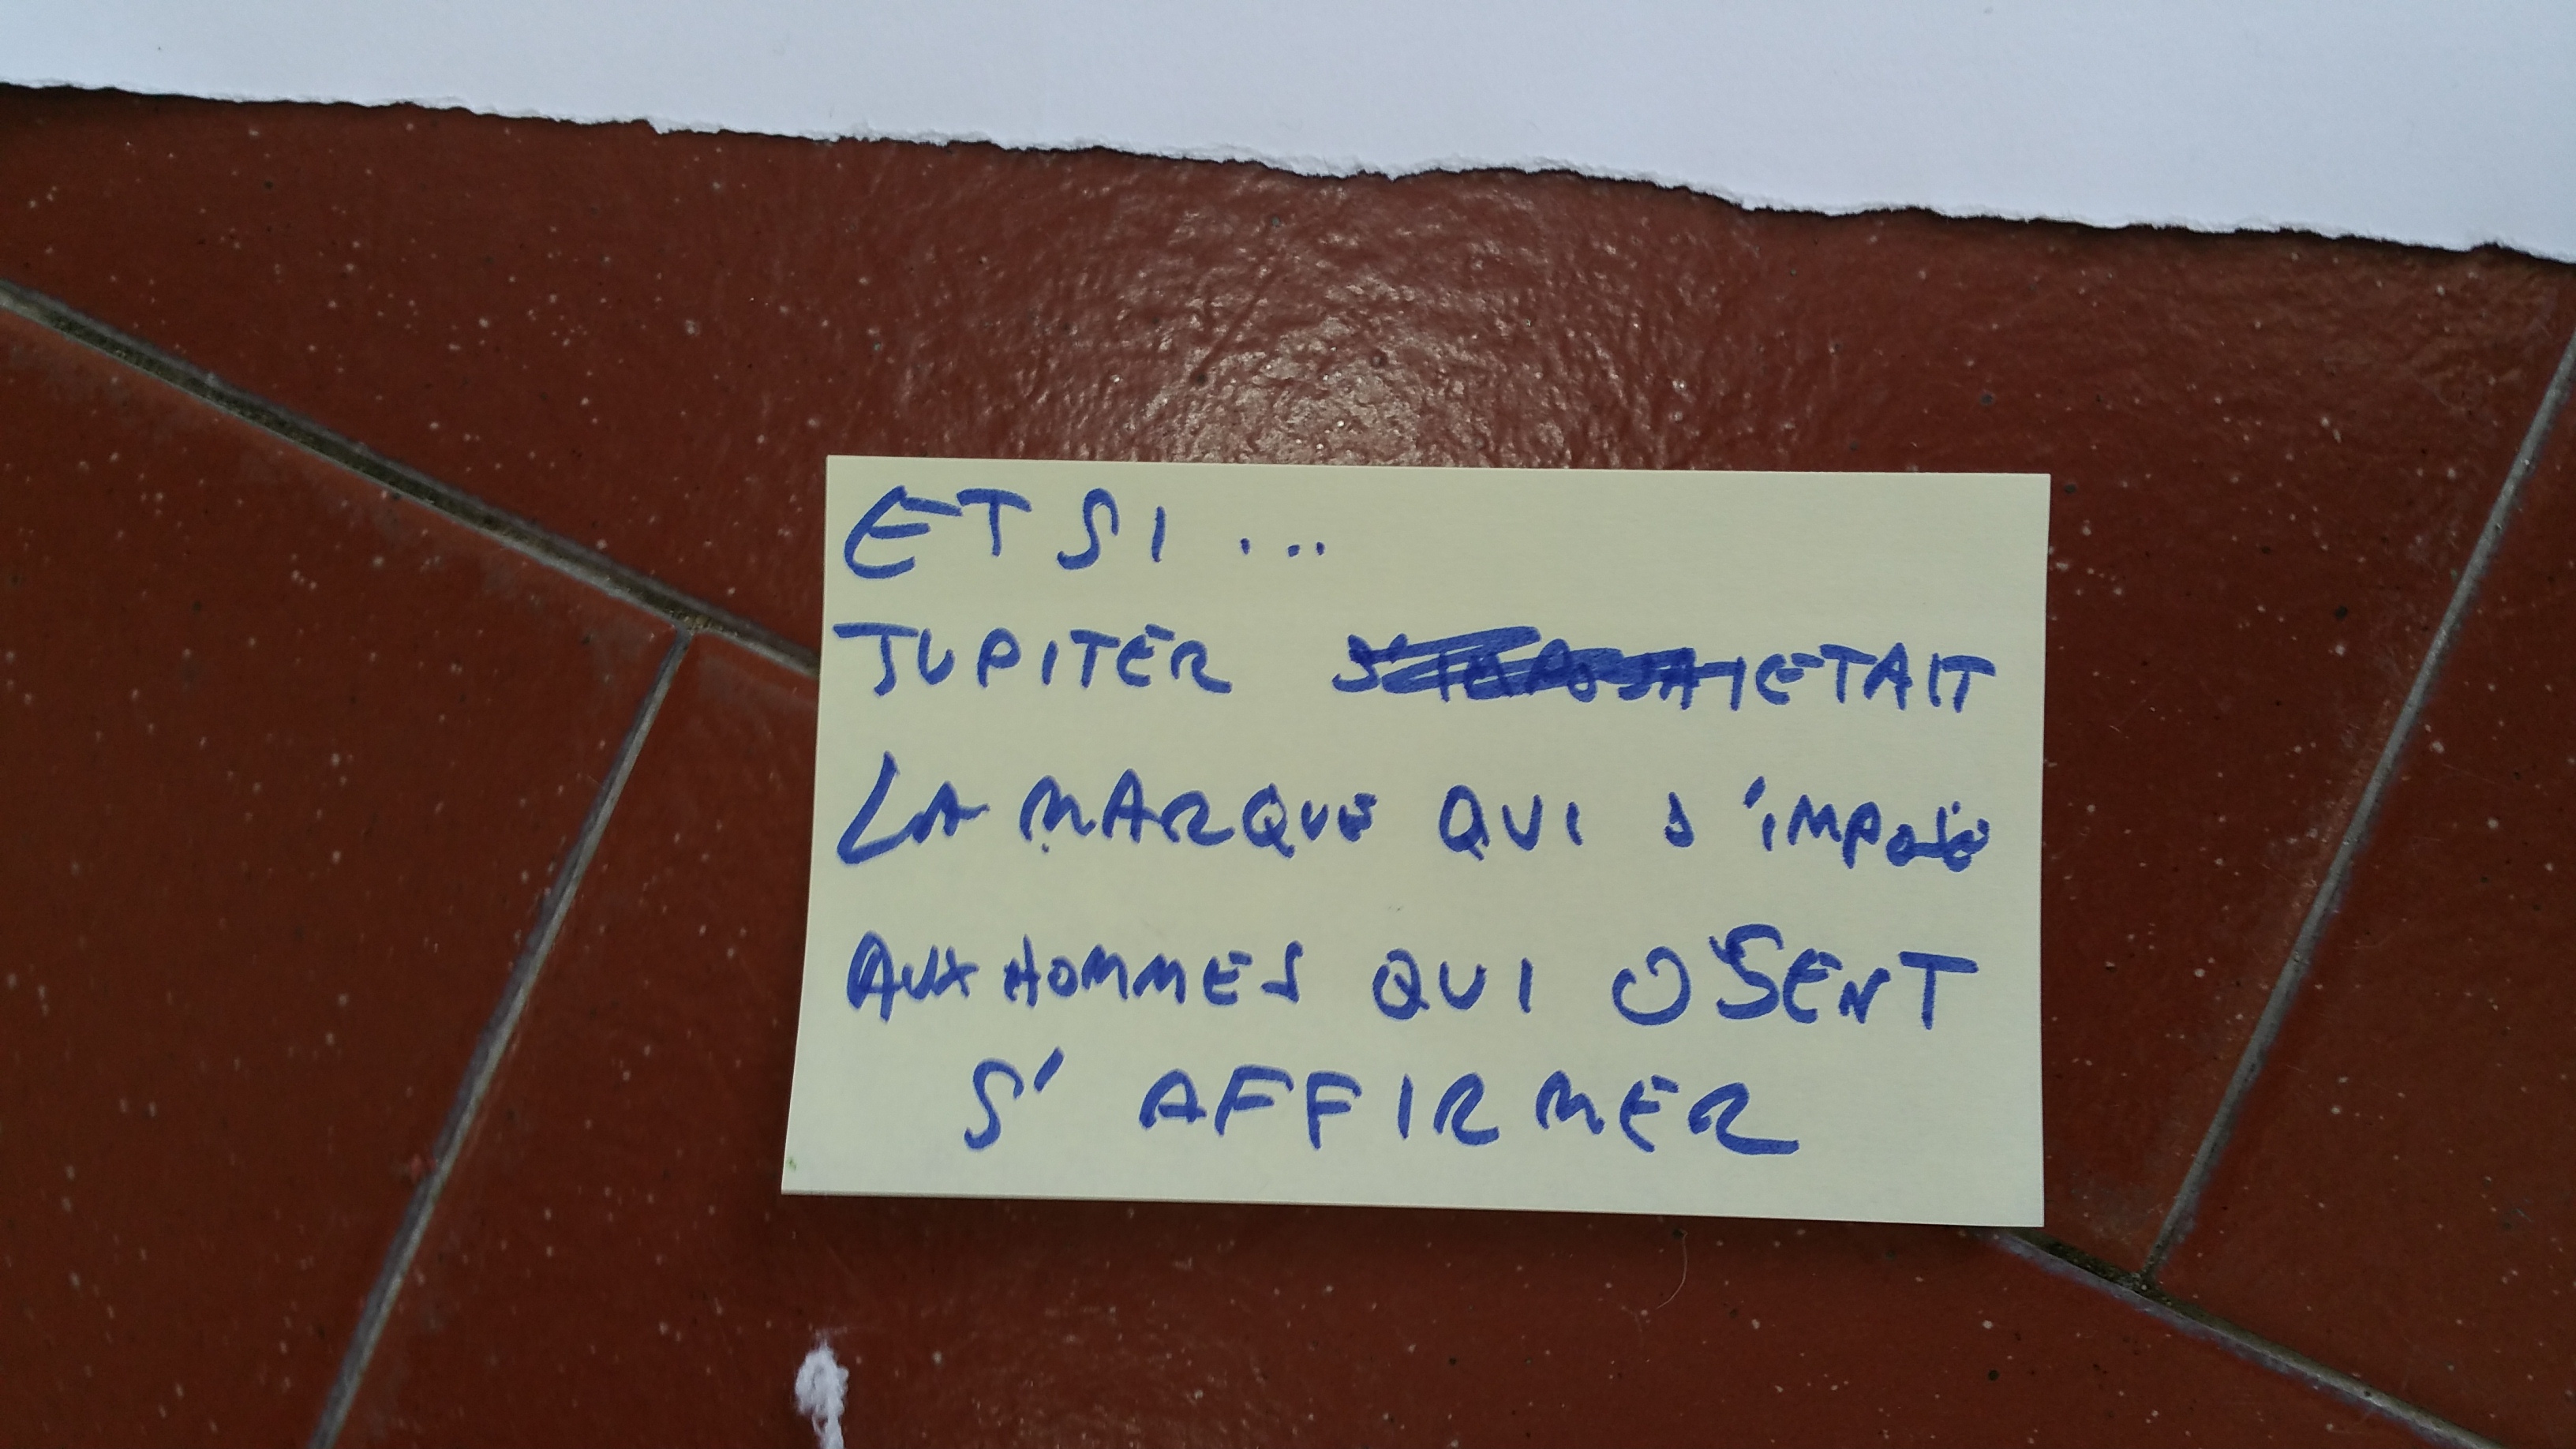 ET SI ...
JUPITER ETAIT
LA MARQUE QUI S'IMPOSE
AUX HOMMES QUI OSENT
S'AFFIRMER